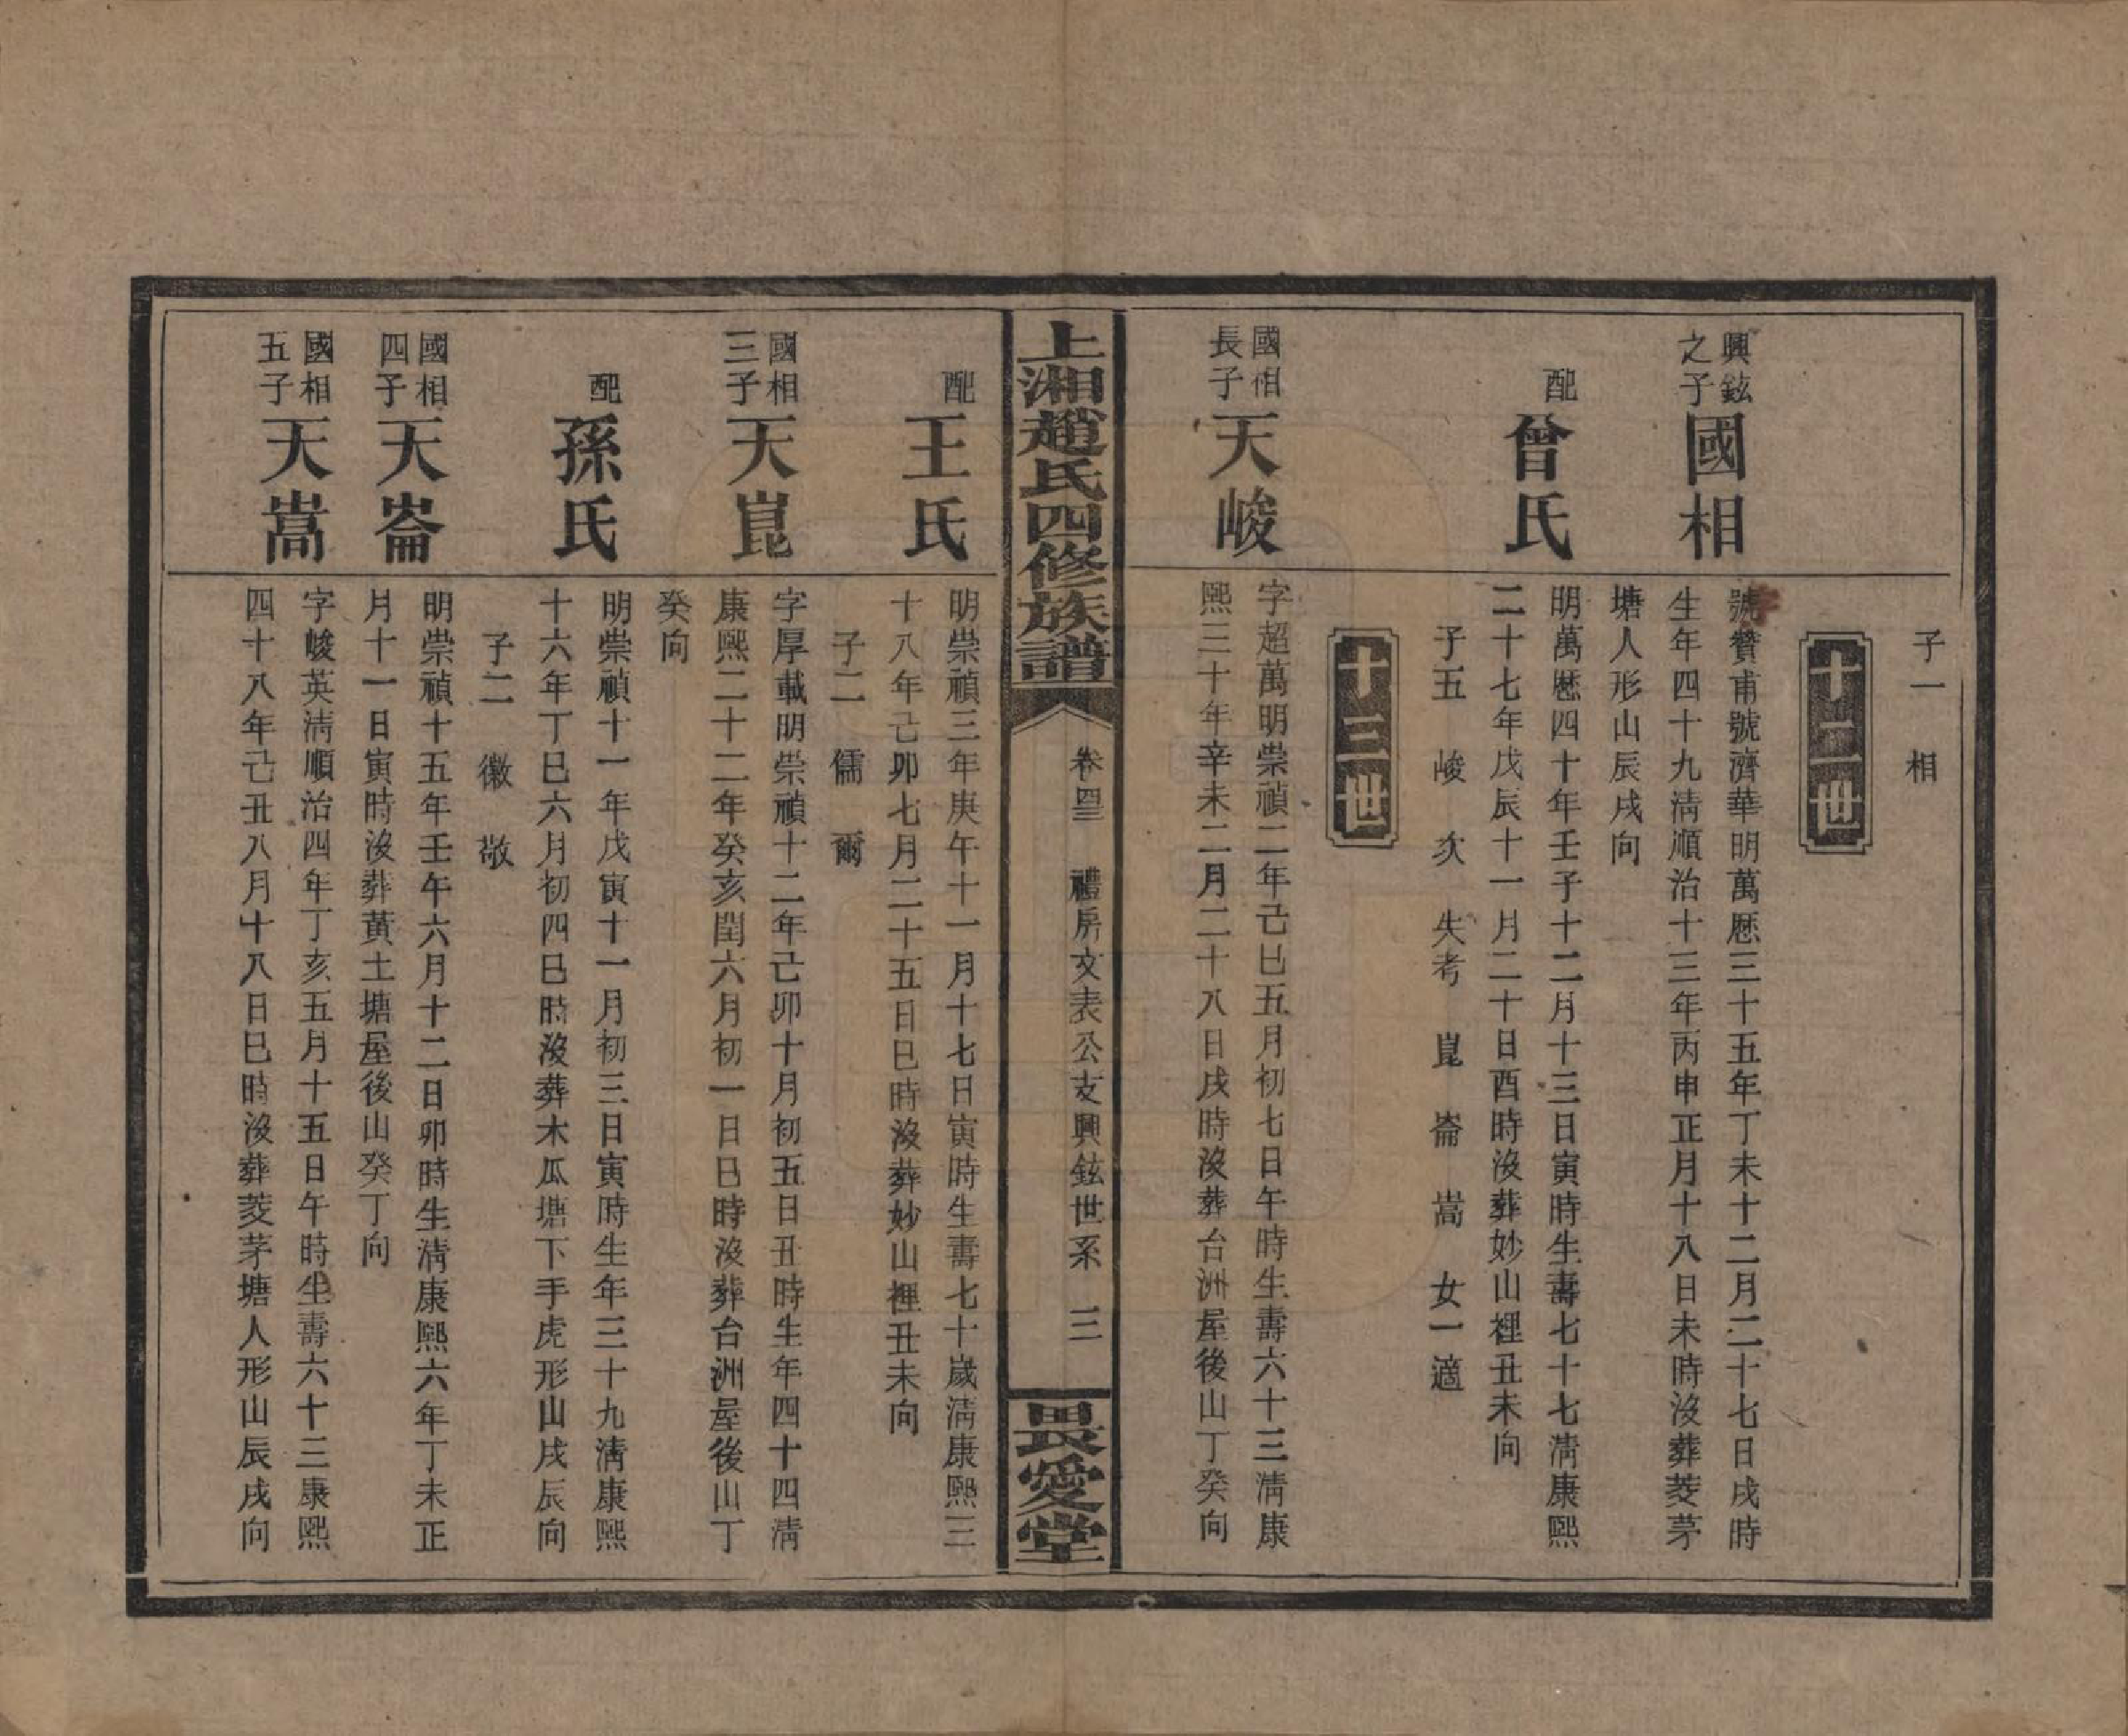 子一　相
十二世
興鉉
之子
國相
號贊甫號濟華明萬厯三十五年丁未十二月二十七日戌時
生年四十九淸順治十三年丙申正月十八日未時沒葬菱茅
塘人形山辰戌向
配
曾氏
明萬厯四十年壬子十二月十三日寅時生壽七十七淸康熙
二十七年戊辰十一月二十日酉時沒葬妙山裡丑未向
子五　峻　次　失考　崑　崙　嵩　女一適
十三世
國相
長子
天峻
字超萬明崇禎二年己巳五月初七日午時生壽六十三淸康
熙三十年辛未二月二十八日戌時沒葬台洲屋後山丁癸向
上湘趙氏四修族譜
卷四三　禮房文表公支興鉉世系　三
畏愛堂
配
王氏
明崇禎三年庚午十一月十七日寅時生壽七十歲淸康熙三
十八年己卯七月二十五日巳時沒葬妙山裡丑未向
子二　儒　爾
國相
三子
天崑
字厚載明崇禎十二年己卯十月初五日丑時生年四十四淸
康熙二十二年癸亥閏六月初一日巳時沒葬台洲屋後山丁
癸向
配
孫氏
明崇禎十一年戊寅十一月初三日寅時生年三十九淸康熙
十六年丁巳六月初四巳時沒葬木瓜塘下手虎形山戌辰向
子二　徽　敬
國相
四子
天崙
明崇禎十五年壬午六月十二日卯時生淸康熙六年丁未正
月十一日寅時沒葬黃土塘屋後山癸丁向
國相
五子
天嵩
字峻英淸順治四年丁亥五月十五日午時生壽六十三康熙
四十八年己丑八月十八日巳時沒葬菱茅塘人形山辰戌向